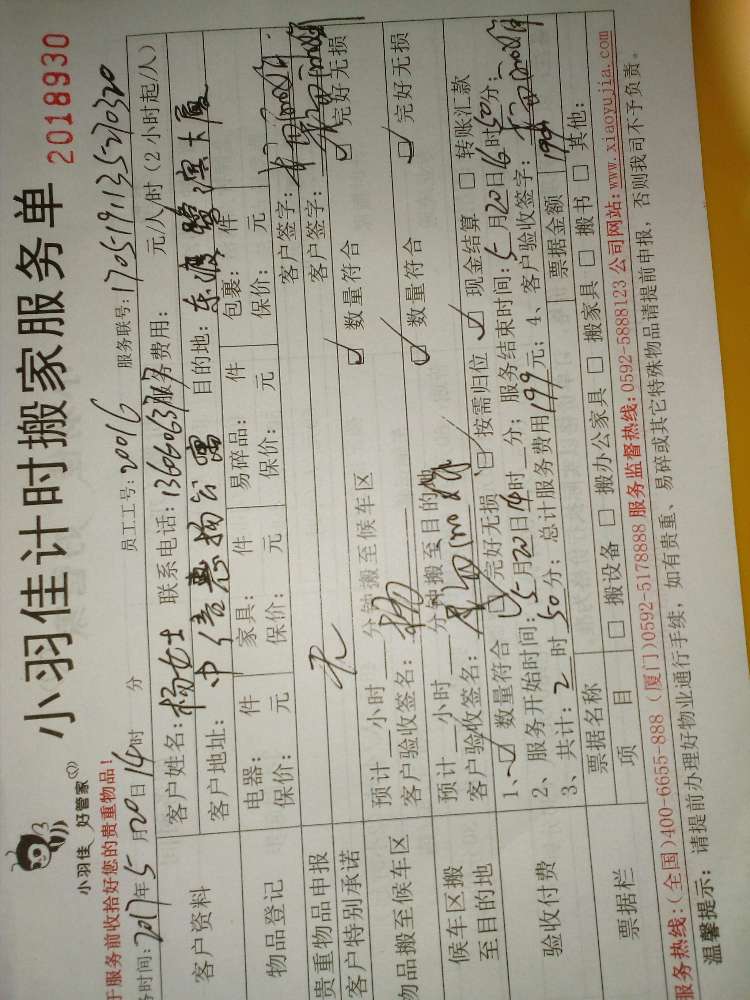 小羽佳 好管家
小羽佳计时搬家服务单
2018930
于服务前收拾好您的贵重物品!
员工工号: 20016 服务联号: 170519113520320
务时间: 2017年5月20日14时 分
元/人/时 (2小时起/人)
客户资料
客户姓名: 杨女士 联系电话: 服务费用:
客户地址: 中信惠扬公寓 目的地: 东渡鹭滨大厦
物品登记
电器: 件 家具: 件 易碎品: 件 包裹: 件
保价: 元 保价: 元 保价: 元 保价: 元
贵重物品申报
客户签字:
客户特别承诺
无
客户签字:
物品搬至候车区
预计 小时 分钟搬至候车区 ☑ 数量符合 ☑ 完好无损
客户验收签名:
候车区搬至目的地
预计 小时 分钟搬至目的地 ☑ 数量符合 ☑ 完好无损
客户验收签名:
验收付费
1、☑ 数量符合 ☑ 完好无损 ☑ 按需归位 ☑ 现金结算 □ 转账汇款
2、服务开始时间: 5月20日14时 分; 服务结束时间: 5月20日16时50分;
3、共计: 2时50分; 总计服务费用199元; 4、客户验收签字:
票据栏
票据名称 票据金额 199
项 目 □ 搬设备 □ 搬办公家具 □ 搬家具 □ 搬书 □ 其他:
服务热线: (全国)400-6655-888 (厦门)0592-5178888 服务监督热线: 0592-5888123 公司网站: www.xiaoyujia.com
温馨提示: 请提前办理好物业通行手续, 如有贵重、易碎或其它特殊物品请提前申报, 否则我司不予负责。